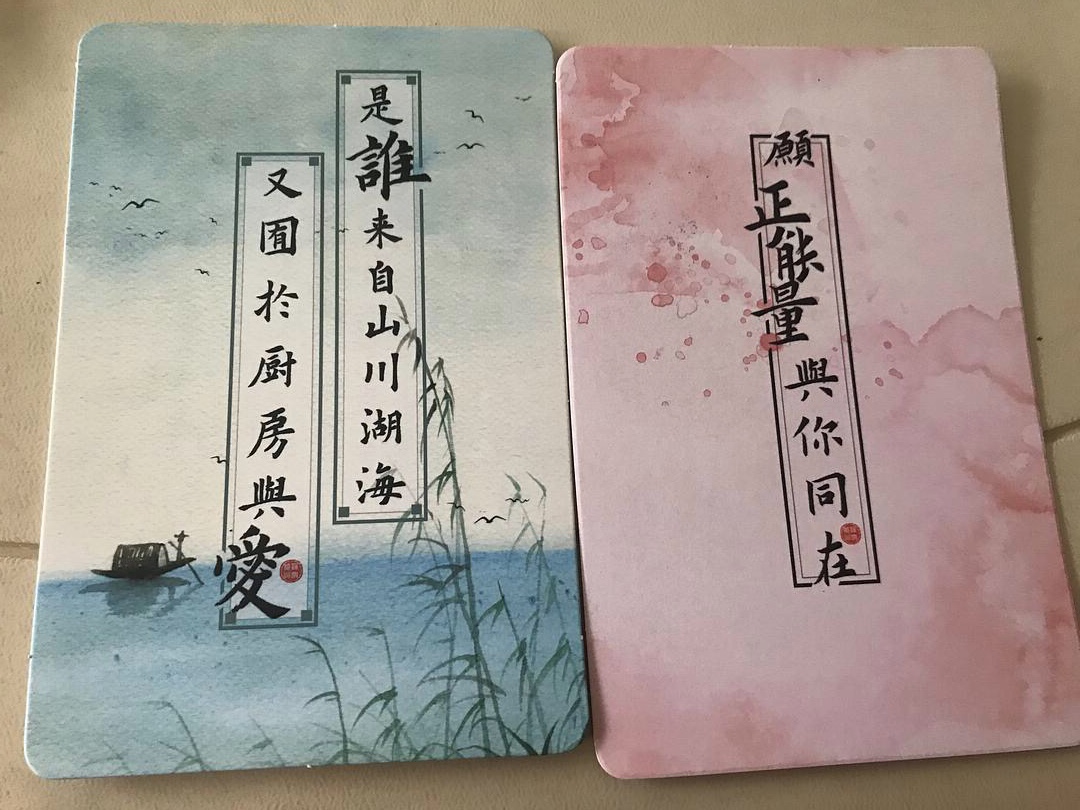 是誰来自山川湖海
又囿於厨房與愛
願正能量與你同在